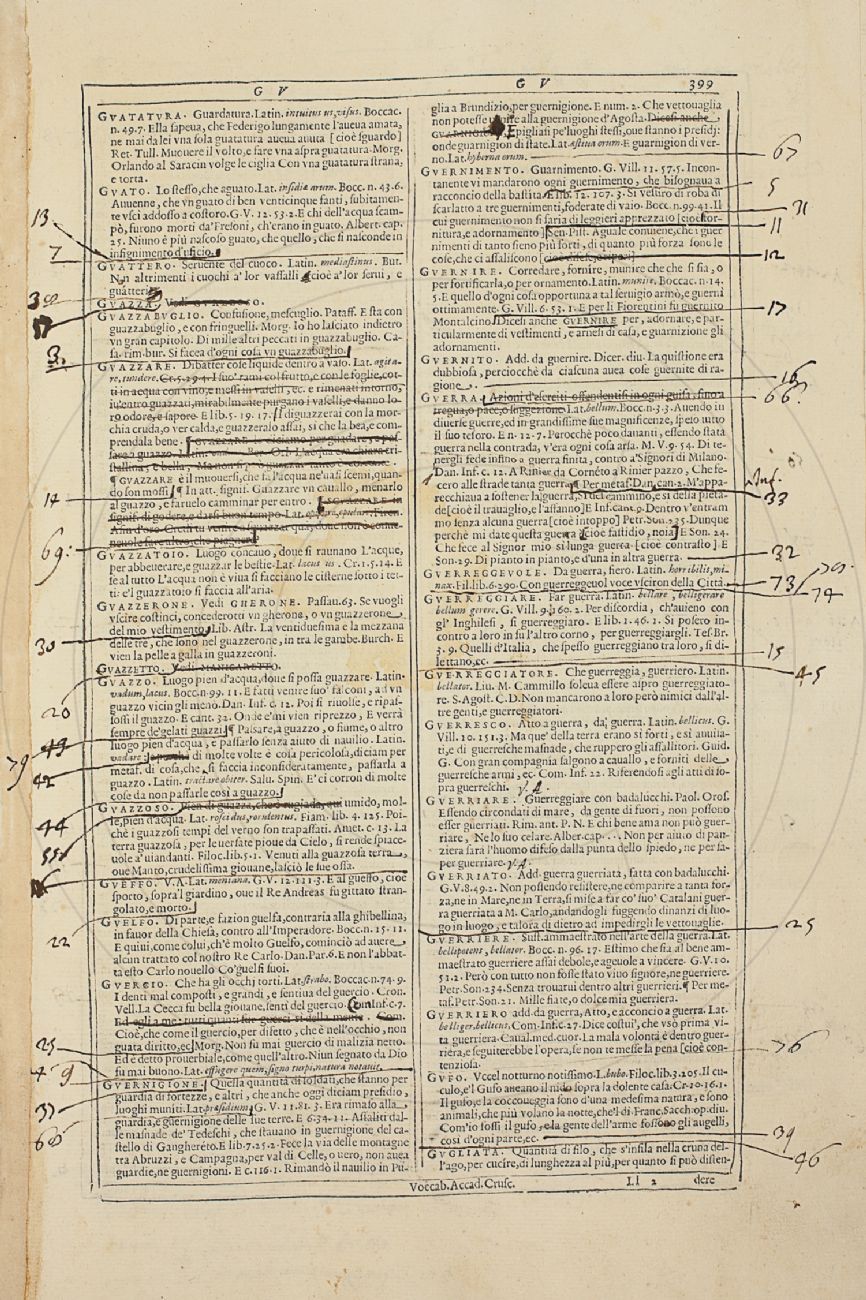 G V
G V 399
GVATATVRA. Guardatura. Latin. intuitus us, visus. Boccac.
n. 49.7. Ella sapeua, che Federigo lungamente l'aueua amata,
ne mai da lei vna sola guatatura aueua auuta [cioè sguardo]
Ret. Tull. Muouere il volto, e fare vna aspra guatatura. Morg.
Orlando al Saracin volge le ciglia Con vna guatatura strana,
e torta.
GVATO. Lo stesso, che aguato. Lat. insidiæ arum. Bocc. n. 43.6.
Auuenne, che vn guato di ben venticinque fanti, subitamen-
te vscì addosso a costoro. G. V. 12. 53.2. E chi dell'acqua scam-
pò, furono morti da' Fresoni, ch'erano in guato. Albert. cap.
25. Niuno è più nascoso guato, che quello, che si nasconde in
infignimento d'uficio.
GVATTERO. Seruente del cuoco. Latin. mediastinus. But.
Non altrimenti i cuochi a' lor vassalli cioè a' lor serui, e
guatteri
GVAZZA, Vedi
GVAZZABVGLIO. Confusione, mescuglio. Pataff. E sta con
guazzabuglio, e con fringuelli. Morg. Io ho lasciato indietro
vn gran capitolo. Di mille altri peccati in guazzabuglio. Ca-
sa. rim. bur. Si facea d'ogni cosa vn guazzabuglio.
GVAZZARE. Dibatter cose liquide dentro a vaso. Lat. agita-
re, tundere. Cr. 5. 29.4. I suo' rami col frutto, e con le foglie, cot-
ti in acqua con vino, e messi in vaselli, ec. e rimenati intorno,
iu'entro guazzati, mirabilmente purgano i vaselli, e danno lo-
ro odore, e sapore. E lib. 5. 19. 17. Si diguazzerai con la mor-
chia cruda, o ver calda, e guazzeralo assai, sì che la bea, e com-
prendala bene. ¶ GVAZZARE
¶ GVAZZARE è il muouersi, che fa l'acqua ne' vasi scemi, quan-
do son mossi ¶ In att. signif. Guazzare vn cauallo, menarlo
al guazzo, e faruelo camminar per entro. ¶ GVAZZARE in
signif. di godere, e darsi buon tempo. Lat.
GVAZZATOIO. Luogo concauo, doue si raunano L'acque,
per abbeuerare, e guazzar le bestie. Lat. lacus us. Cr. 1. 5. 14. E
se al tutto L'acqua non è viua si facciano le cisterne sotto i tet-
ti: e'l guazzatoio si faccia all'aria.
GVAZZERONE. Vedi GHERONE. Passau. 63. Se vuogli
vscire costinci, concederotti vn gherone, o vn guazzerone
del mio vestimento. Lib. Astr. La ventiduesima e la mezzana
delle tre, che sono nel guazzerone, in tra le gambe. Burch. E
vien la pelle a galla in guazzeroni.
GVAZZETTO. Vedi MANICARETTO.
GVAZZO. Luogo pien d'acqua, doue si possa guazzare. Latin.
vadum, lacus. Bocc. n. 99. 11. E fatti venire suo' falconi, ad vn
guazzo vicin gli menò. Dan. Inf. c. 12. Poi si riuolse, e ripas-
sossi il guazzo. E cant. 32. Onde e' mi vien riprezzo, E verrà
sempre de' gelati guazzi ¶ Passare, a guazzo, o fiume, o altro
luogo pien d'acqua, e passarlo senza aiuto di nauilio. Latin.
vadare: di molte volte è cosa pericolosa, diciam per
metaf. di cosa, che si faccia inconsideratamente, passarla a
guazzo. Latin. tractare obiter. Salu. Spin. E' ci corron di molte
cose da non passarle così a guazzo.
GVAZZOSO. Pien di guazza, cioè rugiada, qui umido, mol-
le, pien d'acqua. Lat. roscidus, rorulentus. Fiam. lib. 4. 125. Poi-
chè i guazzosi tempi del verno son trapassati. Amet. c. 13. La
terra guazzosa, per le versate pioue da Cielo, si rende spiace-
uole a' viandanti. Filoc. lib. 5. 1. Venuti alla guazzosa terra,
oue Manto, crudelissima giouane, lasciò le sue ossa.
GVEFFO. V.A. Lat. meniana. G. V. 12. 111. 3. E al gueffo, cioè
sporto, sopra 'l giardino, oue il Re Andreas fu gittato stran-
golato, e morto.
GVELFO. Di parte, e fazion guelfa, contraria alla ghibellina,
in fauor della Chiesa, contro all'Imperadore. Bocc. n. 15. 11.
E quiui, come colui, ch'è molto Guelfo, cominciò ad auere
alcun trattato col nostro Re Carlo. Dan. Par. 6. E non l'abbat-
ta esto Carlo nouello Co' guelfi suoi.
GVERCIO. Che ha gli occhj torti. Lat. strabo. Boccac. n. 74. 9.
I denti mal composti, e grandi, e sentiua del guercio. Cron.
Vell. La Cecca fu bella giouane, sentì del guercio. Com. Inf. c. 7.
Ed egli a me tutti quanti fur guerci sì della mente. Com.
Cioè, che come il guercio, per difetto, che è nell'occhio, non
guata diritto, ec. Morg. Non fu mai guercio di malizia netto.
Ed è detto prouerbiale, come quell'altro. Niun segnato da Dio
fu mai buono. Lat. effugere quem, signo turpi, natura notauit.
GVERNIGIONE. Quella quantità di soldati, che stanno per
guardia di fortezze, e altri, che anche oggi diciam presidio,
luoghi muniti. Lat. præsidium. G. V. 11. 81. 3. Era rimaso alla
guardia, e guernigione delle sue terre. E 6. 34. 11. Assaliti dal-
le masnade de' Tedeschi, che stauano in guernigione del ca-
stello di Ganghereto. E lib. 7. 25. 2. Fece la via delle montagne
tra Abruzzi, e Campagna, per val di Celle, o uero, non auea
guardie, ne guernigioni. E c. 116. 1. Rimandò il nauilio in Pu-
glia a Brundizio, per guernigione. E num. 2. Che vettouaglia
non potesse venire alla guernigione d'Agosta. Dicesi anche
GVARNIGIONE. E pigliasi pe' luoghi stessi, oue stanno i presidj:
onde guarnigion di state. Lat. æstiua orum. E guarnigion di ver-
no. Lat. hyberna orum.
GVERNIMENTO. Guarnimento. G. Vill. 11. 57. 5. Incon-
tanente vi mandarono ogni guernimento, che bisognaua a
racconcio della bastita. E lib. 12. 107. 3. Si vestiro di roba di
scarlatto a tre guernimenti, foderate di vaio. Bocc. n. 99. 41. Il
cui guernimento non si saria di leggieri apprezzato [cioè for-
nitura, e adornamento] Sen. Pist. Aguale conuiene, che i guer
nimenti di tanto sieno più forti, di quanto più forza sono le
cose, che ci assaliscono
GVERNIRE. Corredare, fornire, munire che che si sia, o
per fortificarla, o per ornamento. Latin. munire. Boccac. n. 14.
5. E quello d'ogni cosa opportuna a tal seruigio armò, e guernì
ottimamente. G. Vill. 6. 53. 1. E per li Fiorentini fu guernito
Montalcino. Dicesi anche GVERNIRE per, adornare, e par-
ticularmente di vestimenti, e arnesi di casa, e guarnizione gli
adornamenti.
GVERNITO. Add. da guernire. Dicer. diu. La quistione era
dubbiosa, perciocchè da ciascuna auea cose guernite di ra-
gione.
GVERRA. Azioni d'eserciti offendentisi in ogni guisa, fino a
tregua, o pace, o suggezione. Lat. bellum. Bocc. n. 3. 3. Auendo in
diuerse guerre, ed in grandissime sue magnificenze, speso tutto
il suo tesoro. E n. 12. 7. Perocchè poco dauanti, essendo stata
guerra nella contrada, v'era ogni cosa arsa. M. V. 9. 54. Di te-
nergli fede infino a guerra finita, contro a' Signori di Milano.
Dan. Inf. c. 12. A Rinier da Corneto a Rinier pazzo, Che fe-
cero alle strade tanta guerra. ¶ Per metaf. Dan. can. 2. M'appa-
recchiaua a sostener la guerra, Sì del cammino, e sì della pieta-
de [cioè il trauaglio, e l'affanno] E Inf. cant. 9. Dentro v'entram
mo senza alcuna guerra [cioè intoppo] Petr. Son. 235. Dunque
perchè mi date questa guerra [cioè fastidio, noia] E Son. 24.
Che fece al Signor mio sì lunga guerra [cioè contrasto]. E
Son. 29. Di pianto in pianto, e d'una in altra guerra.
GVERREGGEVOLE. Da guerra, fiero. Latin. horribilis, mi-
nax. Fil. lib. 6. 290. Con guerreggeuol voce vsciron della Città.
GVERREGGIARE. Far guerra. Latin. bellare, belligerare
bellum gerere. G. Vill. 9. 160. 2. Per discordia, ch'auieno con
gl'Inghilesi, si guerreggiaro. E lib. 1. 46. 1. Si posero in-
contro a loro in su l'altro corno, per guerreggiargli. Tes. Br.
3. 9. Quelli d'Italia, che spesso guerreggiano tra loro, si di-
lettano, ec.
GVERREGGIATORE. Che guerreggia, guerriero. Latin.
bellator. Liu. M. Cammillo soleua essere aspro guerreggiato-
re. S. Agost. C. D. Non mancarono a loro però nimici dall'al-
tre genti, e guerreggiatori.
GVERRESCO. Atto a guerra, da guerra. Latin. bellicus. G.
Vill. 10. 151. 3. Ma que' della terra erano sì forti, e sì auuisa-
ti, e di guerresche masnade, che ruppero gli assalitori. Guid.
G. Con gran compagnia salgono a cauallo, e forniti delle
guerresche armi, ec. Com. Inf. 22. Riferendosi agli atti di so-
pra guerreschi.
GVERRIARE. Guerreggiare con badalucchi. Paol. Oros.
Essendo circondati di mare, da gente di fuori, non possono
esser guerriati. Rim. ant. P. N. E chi bene ama non può guer-
riare, Ne lo suo celare. Alber. cap. ... Non per aiuto di pan-
ziera sarà l'huomo difeso dalla punta dello spiedo, ne per sa-
per guerriare.
GVERRIATO. Add. guerra guerriata, fatta con badalucchi.
G. V. 8. 49. 2. Non possendo resistere, ne comparire a tanta for-
za, ne in Mare, ne in Terra, si mise a far co' suo' Catalani guer-
ra guerriata a M. Carlo, andandogli fuggendo dinanzi di luo-
go in luogo, e talora di dietro ad impedirgli le vettouaglie.
GVERRIERE. Sust. ammaestrato nell'arte della guerra. Lat.
bellipotens, bellator. Bocc. n. 96. 17. Estimo che sia al bene am-
maestrato guerriere assai debole, e ageuole a vincere. G. V. 10.
51. 2. Però con tutto non fosse stato viuo signore, ne guerriere.
Petr. Son. 234. Senza trouarui dentro altri guerrieri. ¶ Per me-
taf. Petr. Son. 21. Mille fiate, o dolce mia guerriera.
GVERRIERO add. da guerra, Atto, e acconcio a guerra. Lat.
belliger, bellicus, Com. Inf. c. 27. Dice costui, che vsò prima vi-
ta guerriera. Caual. med. cuor. La mala volontà è dentro guer-
riera, e seguiterebbe l'opera, se non temesse la pena [cioè con-
tenziosa.
GVFO. Vccel notturno notissimo. L. bubo. Filoc. lib. 3. 205. Il cu-
culo, e'l Gufo aueano il nido sopra la dolente casa. Cr. 10. 16. 1.
Il gufo, e la coccoueggia sono d'una medesima natura, e sono
animali, che più volano la notte, che 'l dì. Franc. Sacch. op. diu.
Com'io fossi il gufo, e la gente dell'arme fossono gli augelli,
così d'ogni parte, ec.
GVGLIATA. Quantità di filo, che s'infila nella cruna del-
l'ago, per cucire, di lunghezza al più, per quanto si può disten-
Voccab. Accad. Crusc. Ll 2 dere
13
7
3
14
69:
30
20
43
79
42
44
22
25
9
37
67
5
31
11
12
17
16
66?
Inf.
33
32
73
74
15
45
25
76
39
46